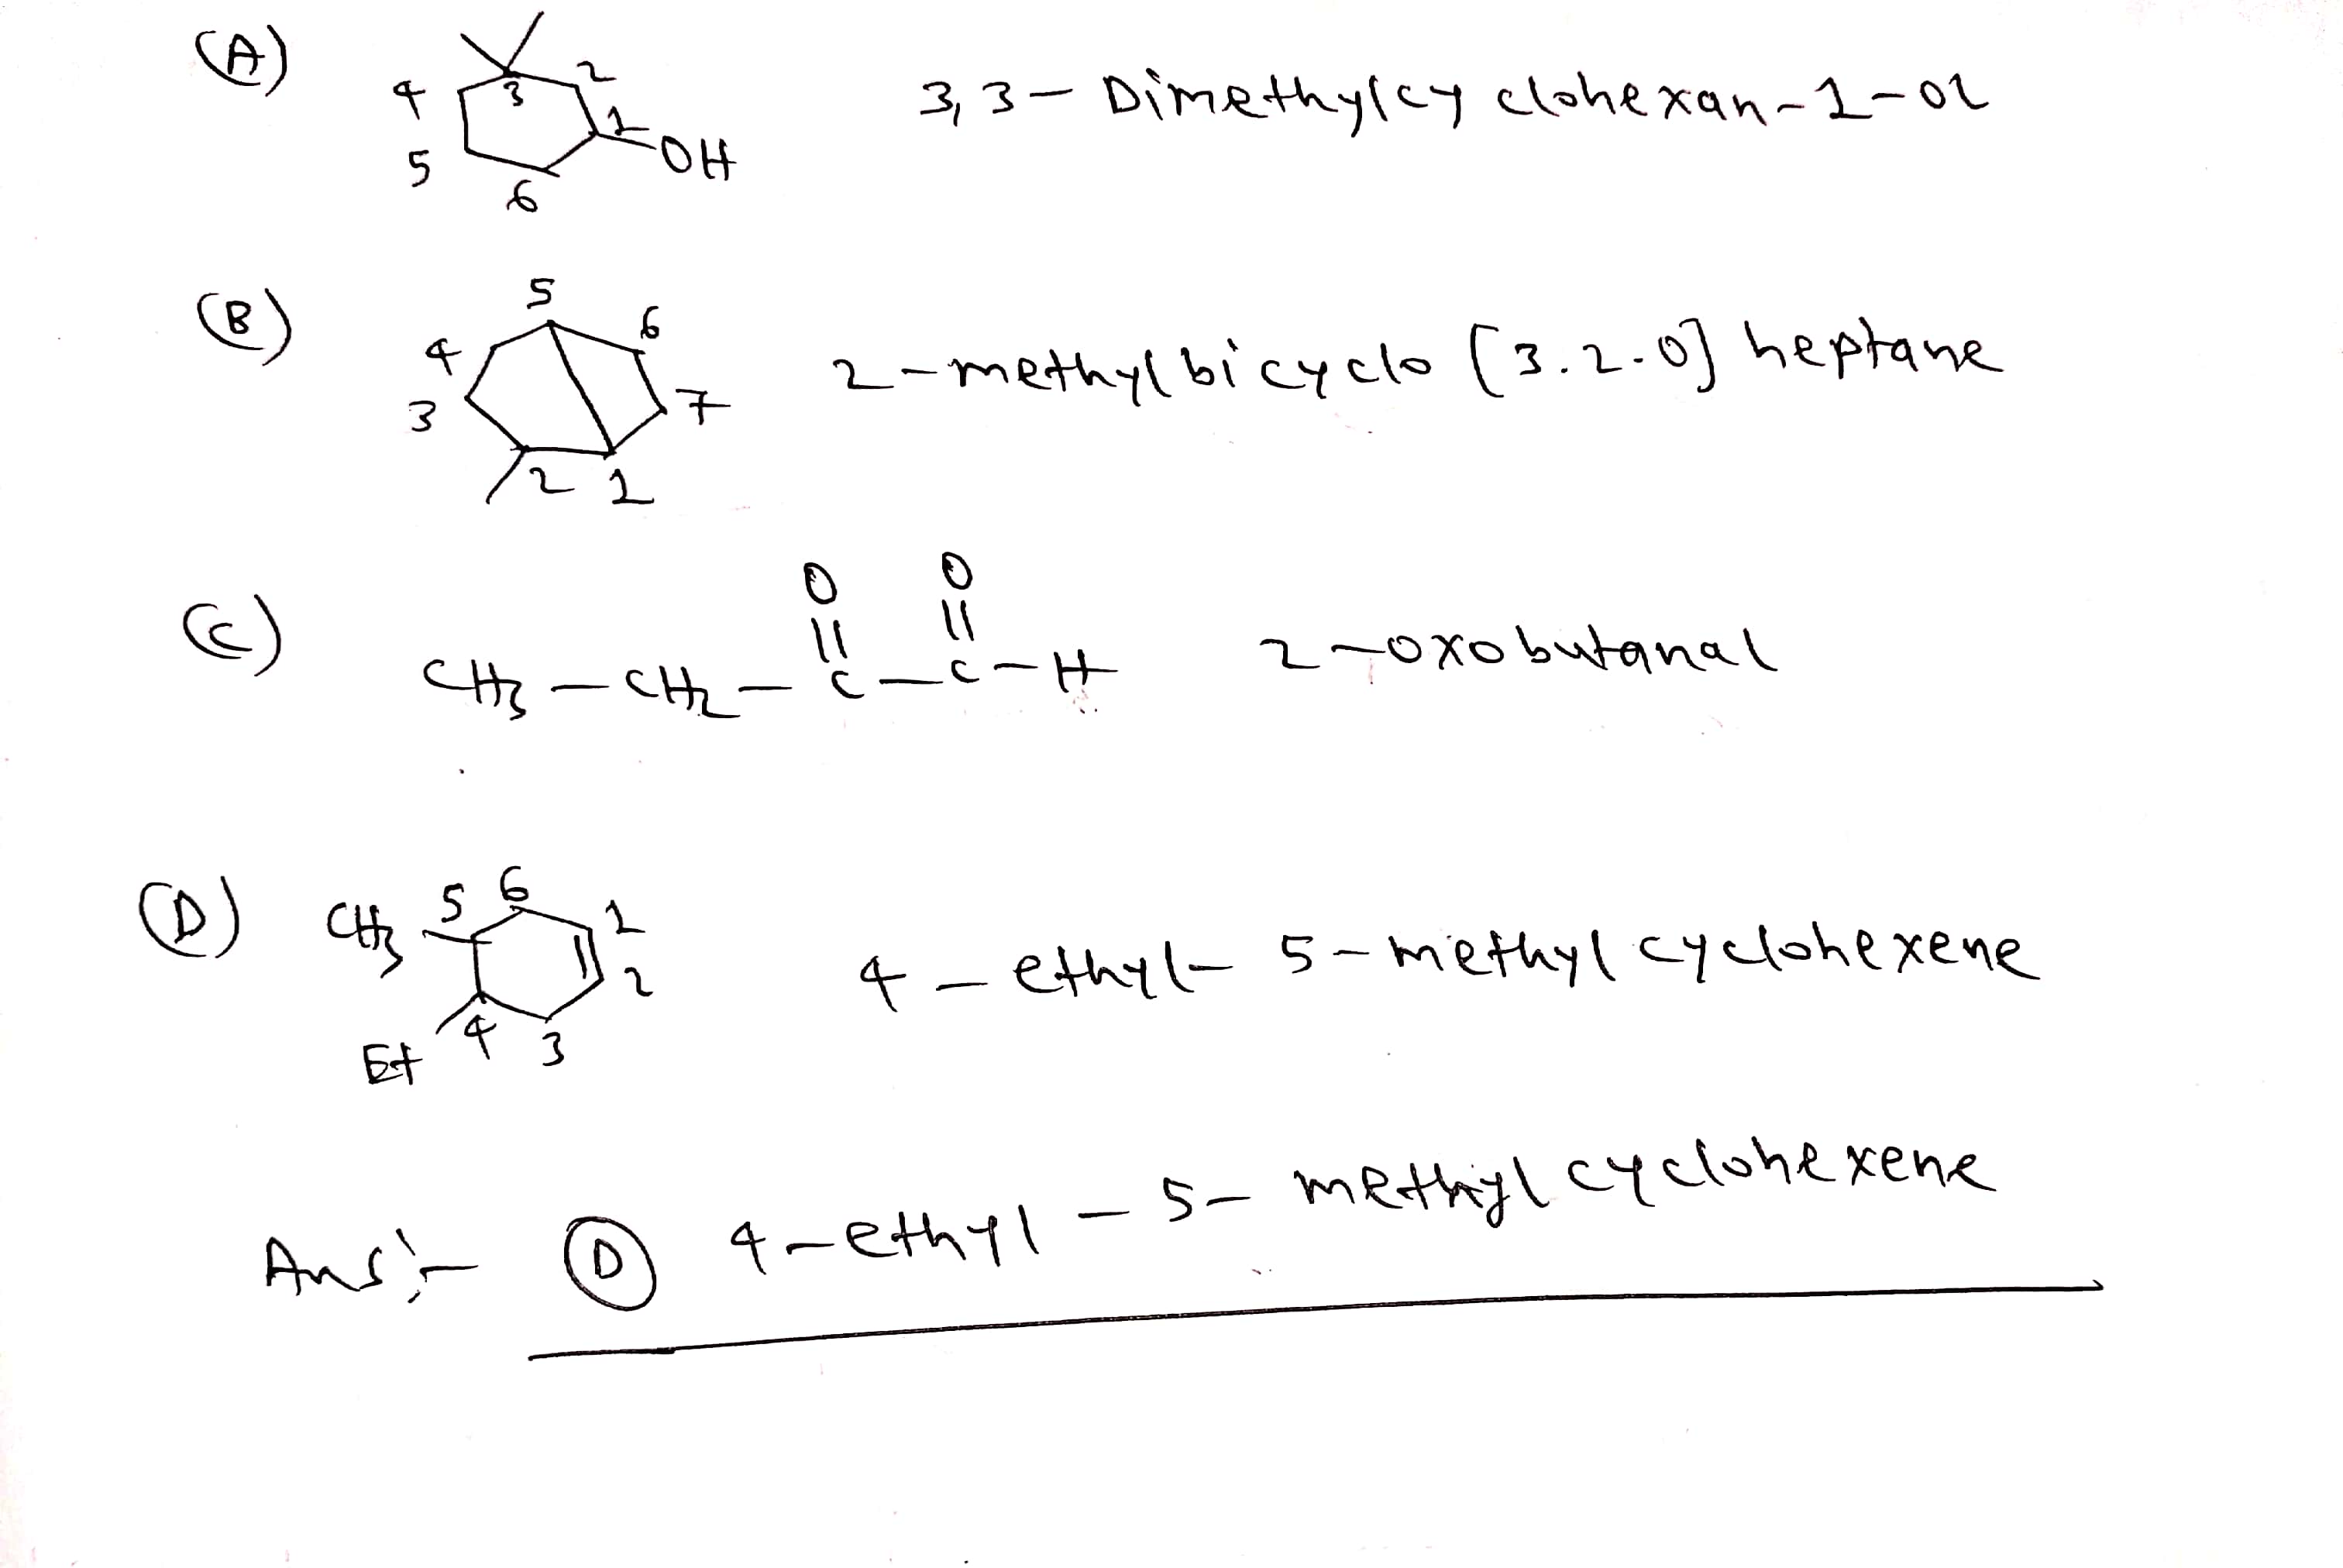 (A) 4 3 2 1 OH 5 6 3,3 - Dimethylcyclohexan-1-ol
(B) 5 4 6 3 7 2 1 2-methylbicyclo [3.2.0] heptane
(C) CH3 - CH2 - C - C - H O O 2-oxobutanal
(D) CH3 5 6 1 2 Et 4 3 4 - ethyl - 5 - methyl cyclohexene
Ans:- (D) 4-ethyl - 5- methyl cyclohexene